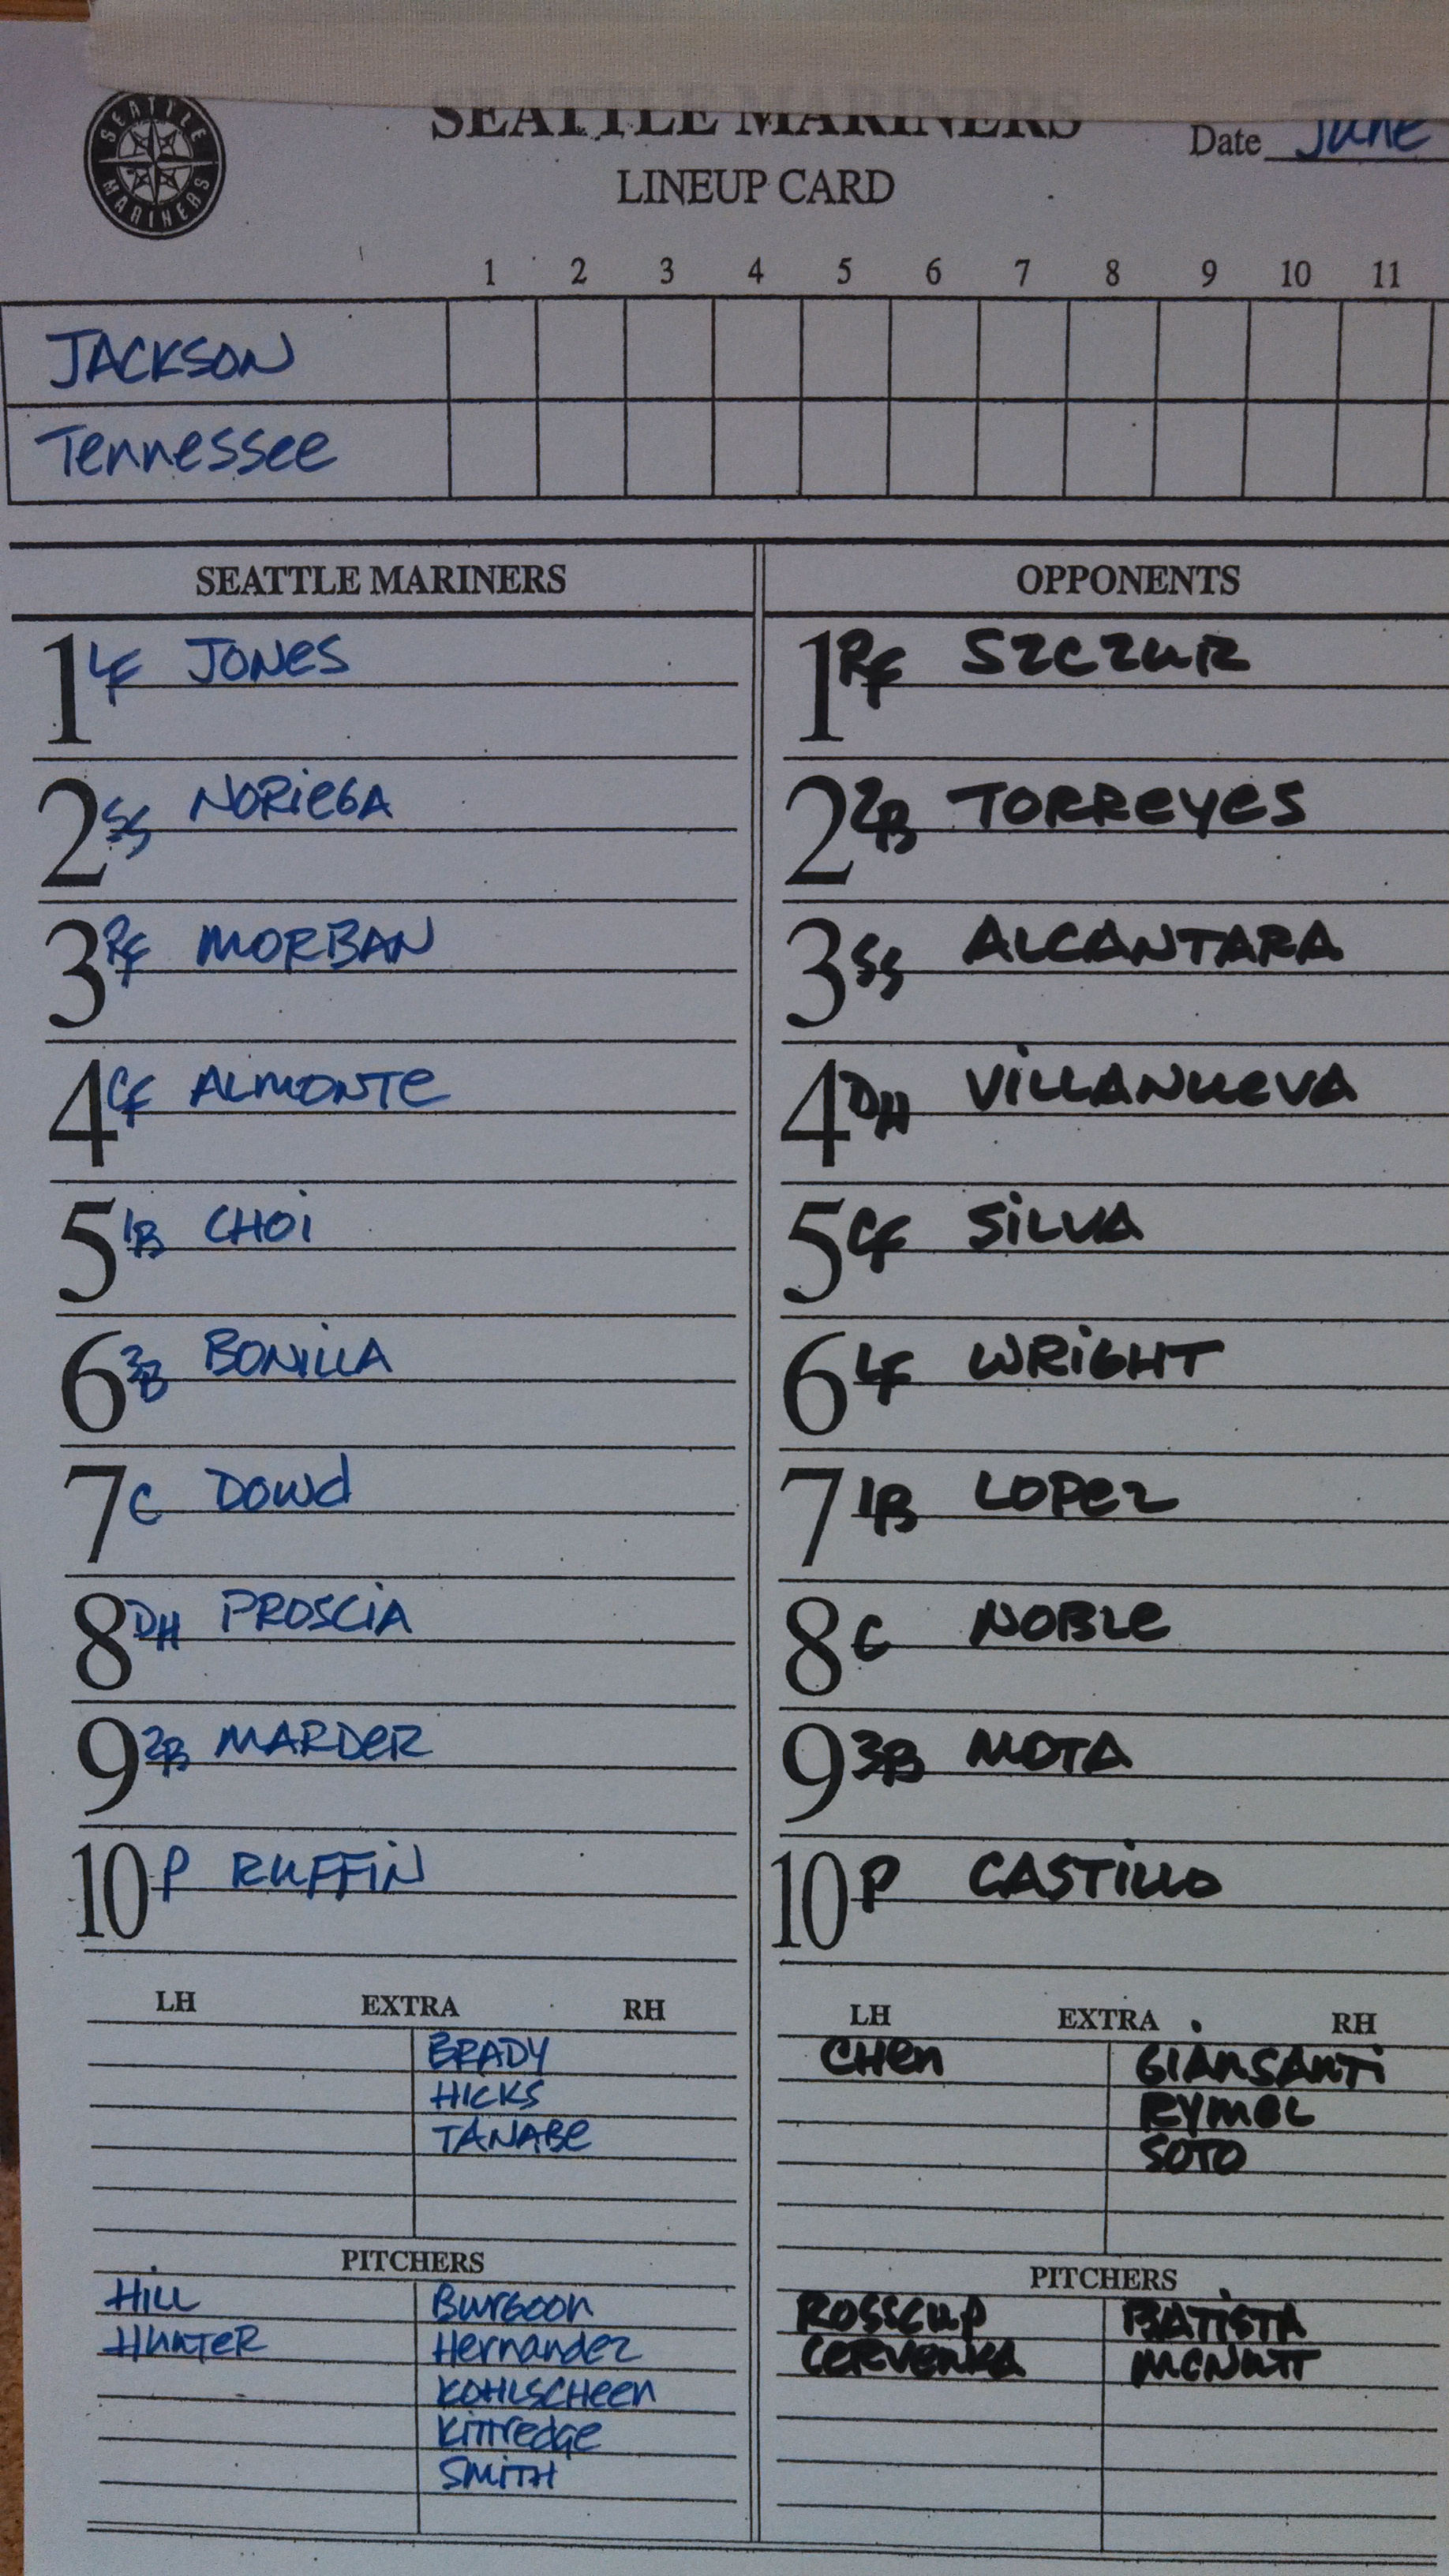 SEATTLE MARINERS
SEATTLE MARINERS Date June
LINEUP CARD
1 2 3 4 5 6 7 8 9 10 11
JACKSON
Tennessee
SEATTLE MARINERS
1 LF JONES
2 SS NORIEGA
3 RF MORBAN
4 CF ALMONTE
5 1B CHOI
6 3B BONILLA
7 C Dowd
8 DH PROSCIA
9 2B MARDER
10 P RUFFIN
LH EXTRA RH
BRADY
HICKS
TANABE
PITCHERS
HILL Burgoon
HUNTER Hernandez
KOHLSCHEEN
Kittredge
SMITH
OPPONENTS
1 RF SZCZUR
2 2B TORREYES
3 SS ALCANTARA
4 DH VILLANUEVA
5 CF SILVA
6 LF WRIGHT
7 1B LOPEZ
8 C NOBLE
9 3B MOTA
10 P CASTILLO
LH EXTRA RH
CHEN GIANSANTI
RYMEL
SOTO
PITCHERS
ROSSCUP BATISTA
CERVENKA MCNUTT